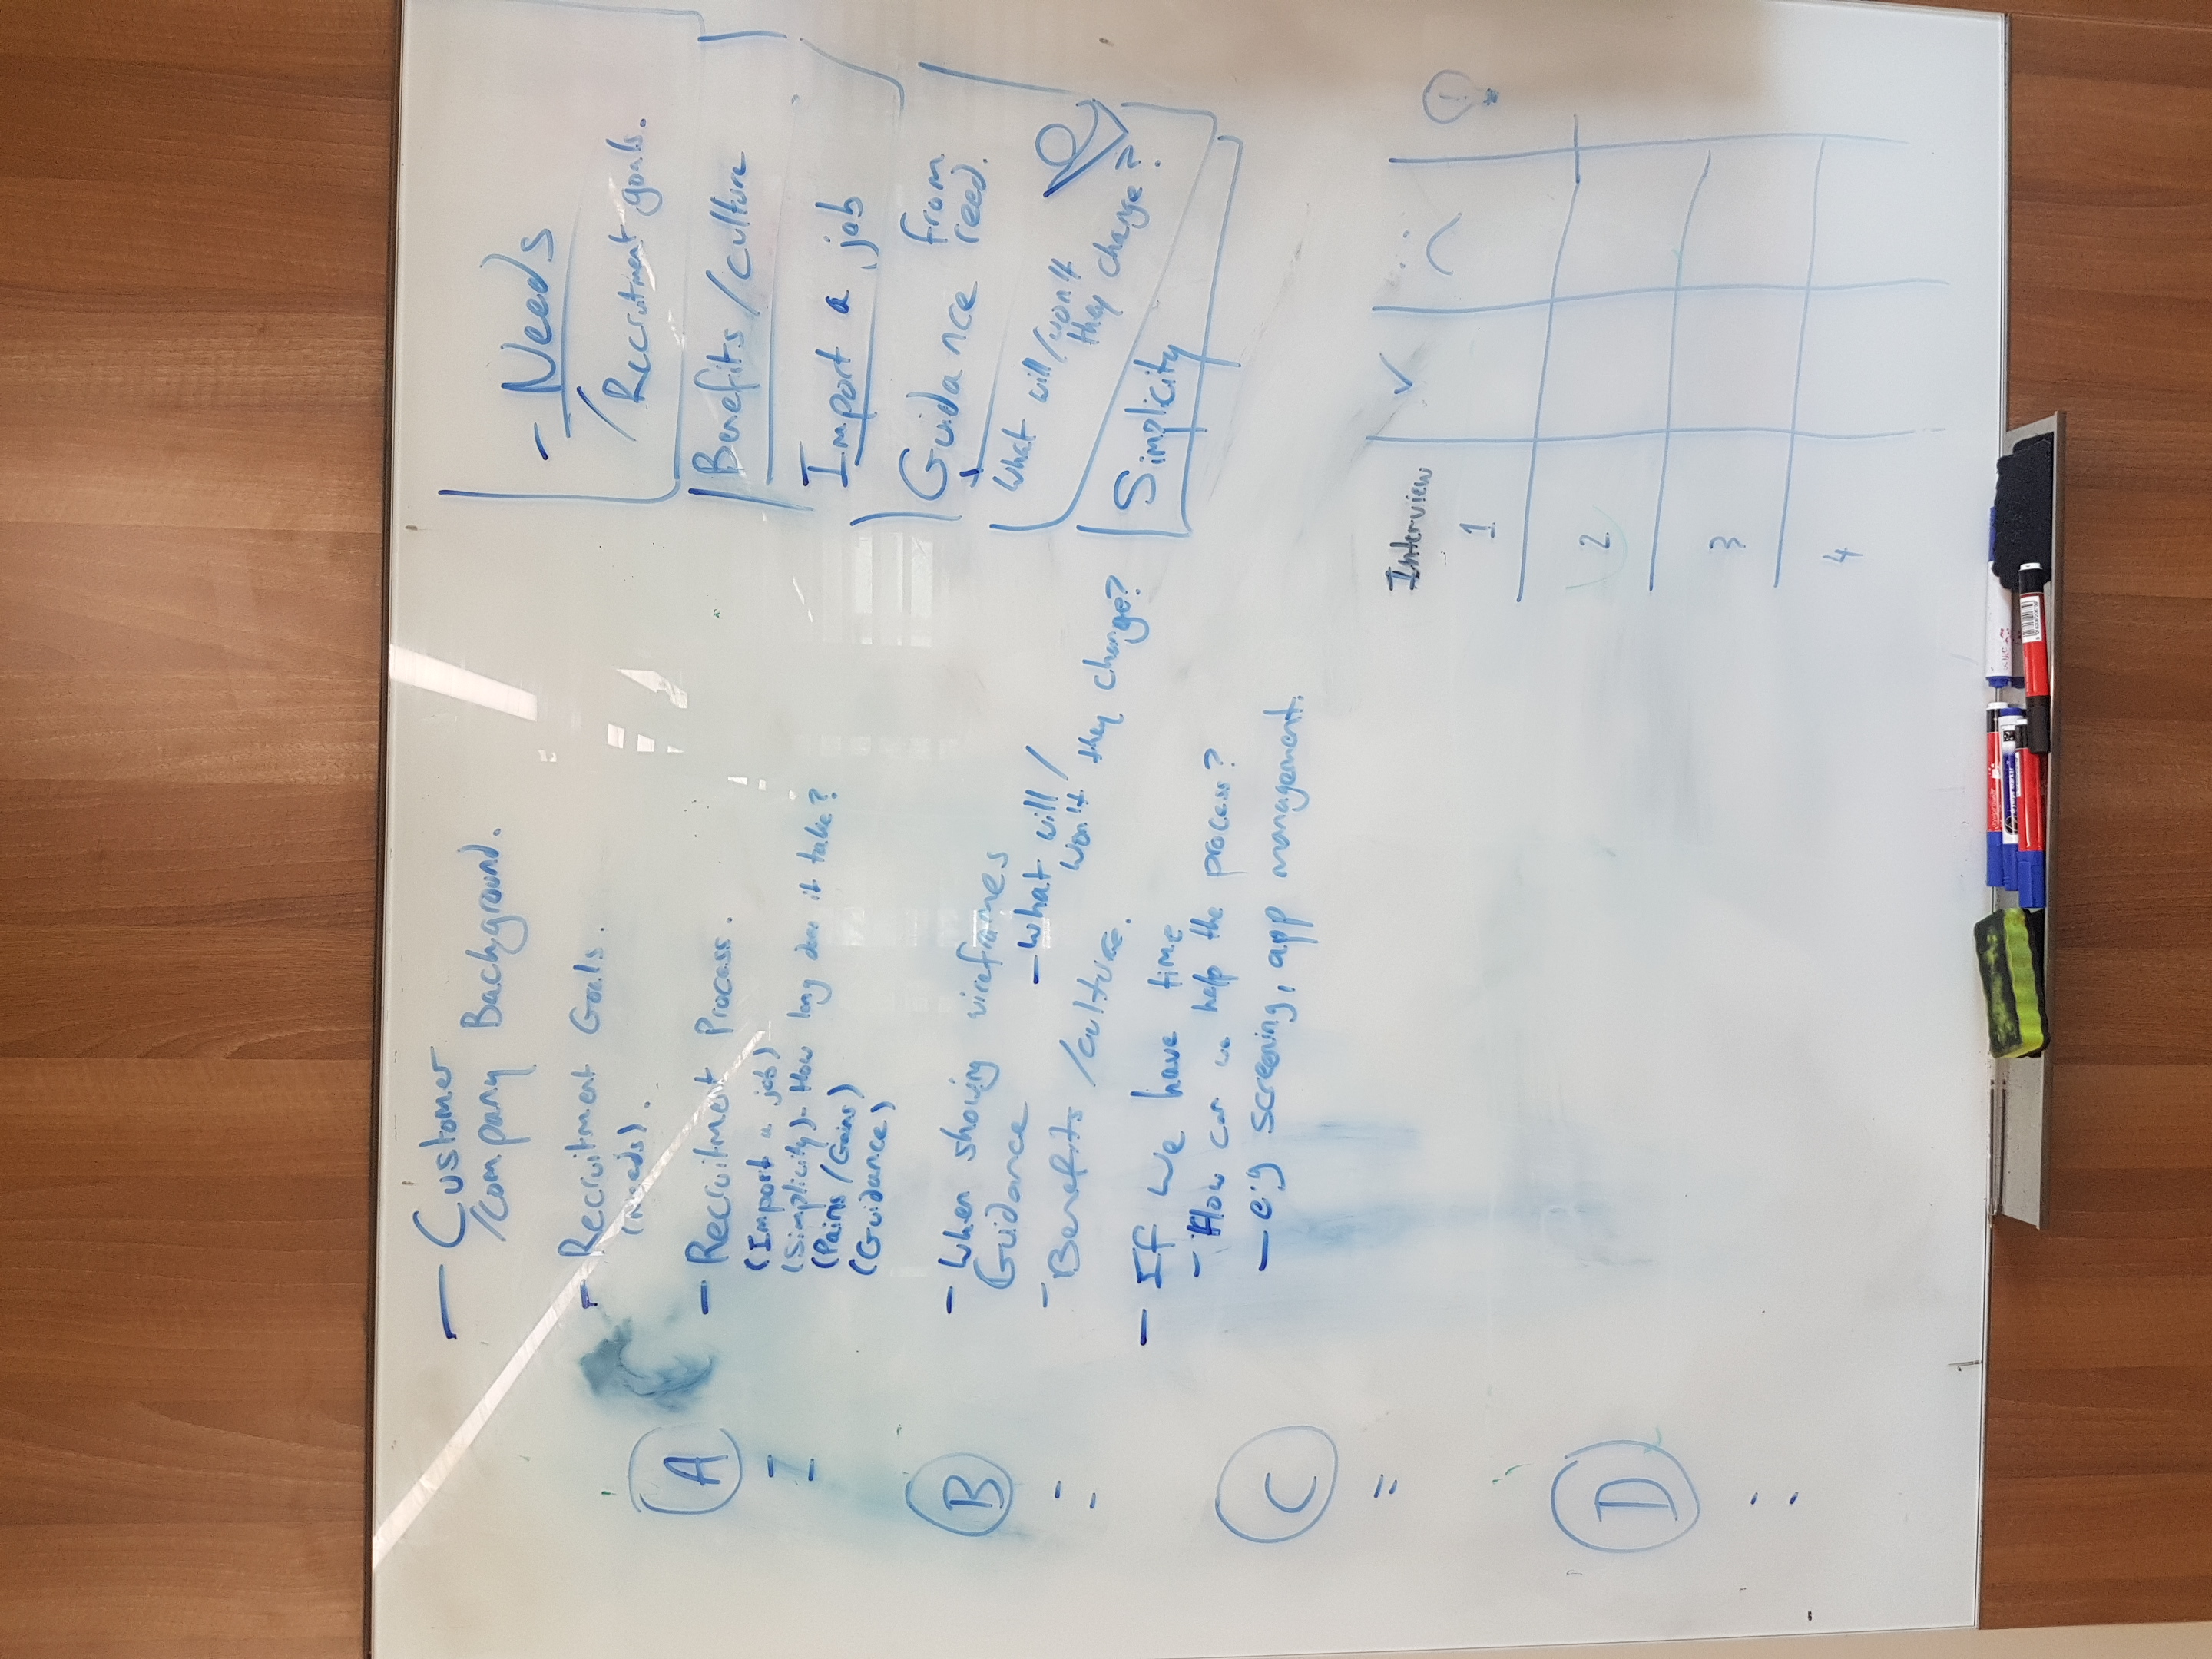 - Customer
/company Background.
- Recruitment Goals.
(Needs).
- Recruitment Process.
(Import a job)
(Simplicity)- How long does it take?
(Pains/Gains)
(Guidance)
- When showing wireframes
Guidance
- What will/
won't they change?
- Benefits/culture.
- If we have time
- How can we help the process?
- e.g screening, app management.
A
B
C
D
- Needs
/Recrutment goals.
Benefits/culture
Import a job
Guidance from
reed.
What will/won't
they change?
Simplicity
Interview
1
2
3
4